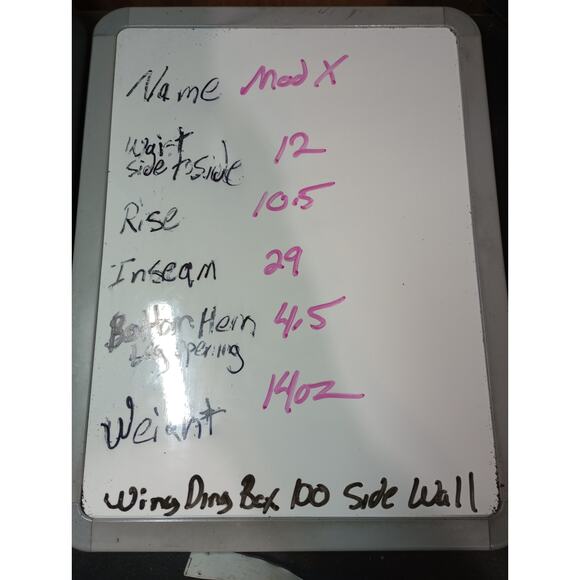 Name Mod X
Waist 12
side to side
Rise 10.5
Inseam 29
Bottom Hem 4.5
Leg opening
Weight 14oz
Wing Ding Box 100 Side Wall